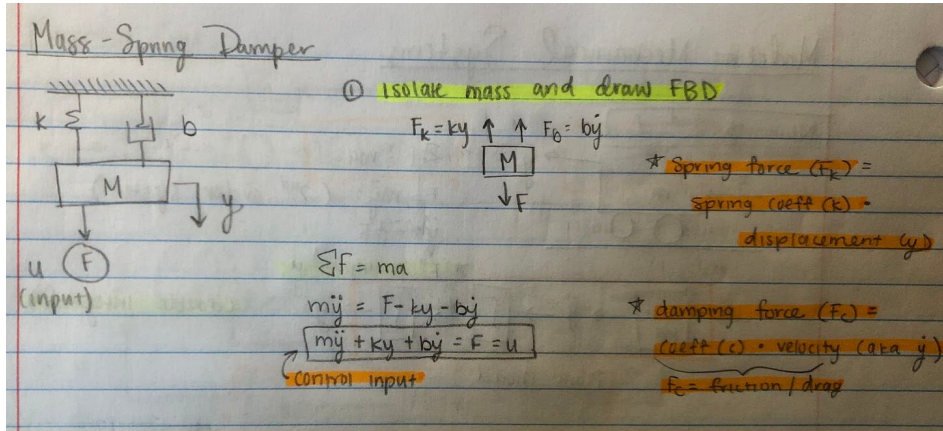 Mass-Spring Damper
① Isolate mass and draw FBD
k
b
M
y
u
F
(input)
F_k = ky ↑ ↑ F_b = bẏ
M
↓F
Σf = ma
mÿ = F - ky - bẏ
mÿ + ky + bẏ = F = u
control input
* Spring force (F_k) =
spring coeff (k) ·
displacement (y)
* damping force (F_c) =
coeff (c) · velocity (aka ẏ)
f_c = friction / drag